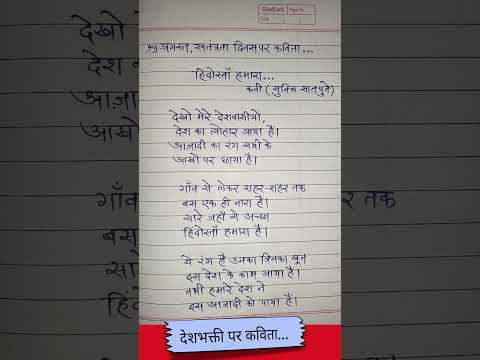 १५ अगस्त, स्वतंत्रता दिवस पर कविता...
हिंदोस्ताँ हमारा...
कवी (सुनिल सातपुते)
देखो मेरे देशवासीयो,
देश का त्योहार आया है।
आज़ादी का रंग सभी के
आखो पर छाया है।
गाँव से लेकर शहर-शहर तक
बस एक ही नारा है।
सारे जहाँ से अच्छा
हिंदोस्ताँ हमारा है।
ये रंग है उनका जिनका खून
इस देश के काम आया है।
तभी हमारे देश ने
इस आज़ादी को पाया है।
देशभक्ती पर कविता...